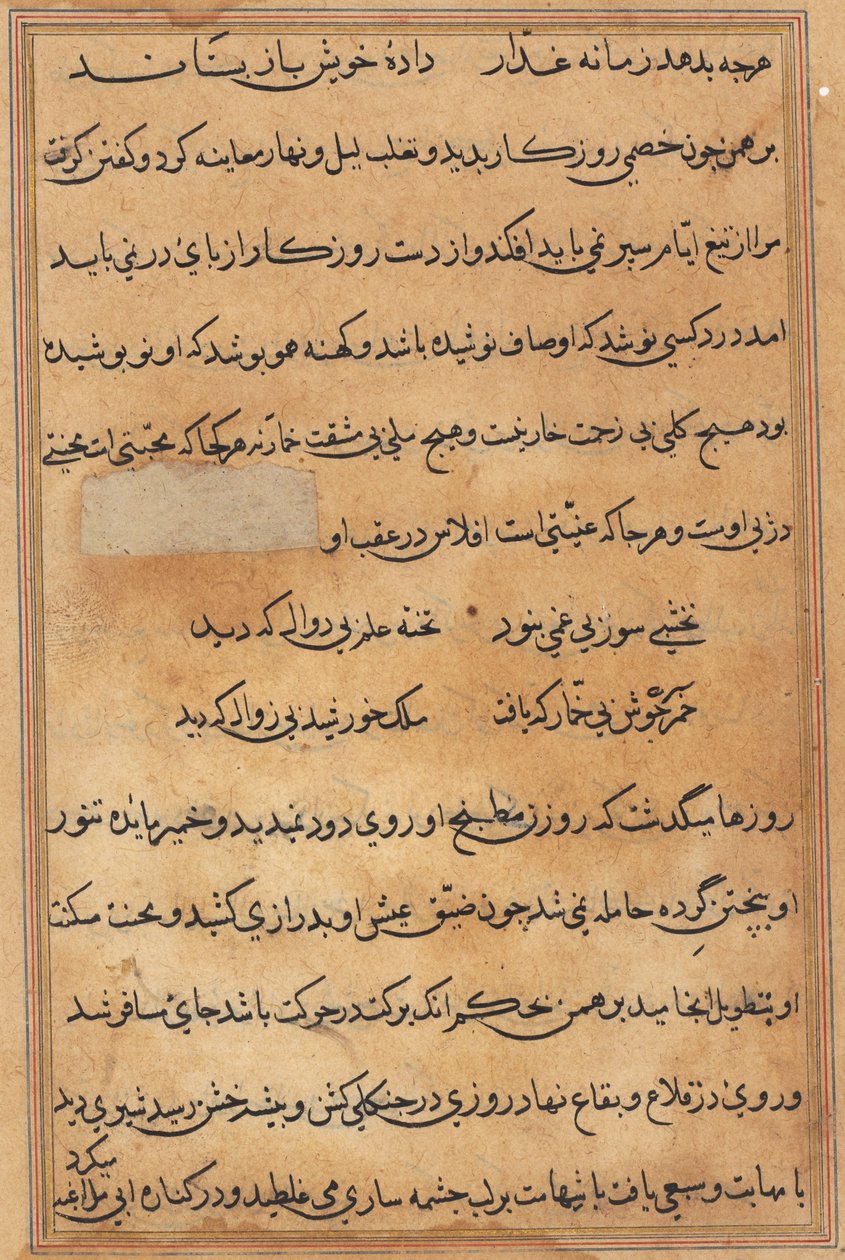 هرجه بدهد زمانه غدّار دادهٔ خویش باز بستاند
برهمن جون خصمی روزکار بدید و تغلب لیل و نهار معاینه کرد و کفتن کرفت
مرا از تیغ ایّام سپر نمی باید افکند و از دست روزکار از بایٔ در نمی باید
امد درد کسی نوشد که او صاف نوشیده باشد و کهنه همو بوشد که او نو بوشیده
بود هیج کلی بی زحمت خار نیست و هیج ملی بی مشقت خمار نه هرکجا که محبّتی است محنتی
در بی اوست و هرجا که غنیّتی است افلاس در عقب او
نخشبی سوز بی غمی بنود تخته علم بی دوالی که دید
خمر جوش بی خمّار که یافت ملک خورشید بی زوال که دید
روزها میگذشت که روزن مطبخ او روی دود نمیدید و خمیر مایدهٔ تنور
او بپختن گِرده حامله نمی شد جون ضیّق عیش او بدرازی کشید و محنت مسکنت
او بتطویل انجامید برهمن بحکم انک برکت در حرکت باشد جایٔ مسافر شد
و رویٔ در قلاع و بقاع نهاد روزی در جنکلی کشن و بیشه خشن رسید شیری دید
میکرد
با مهابت و سبعی یافت با شهامت بر لب جشمه ساری می غلطید و در کناره ابی مراغه